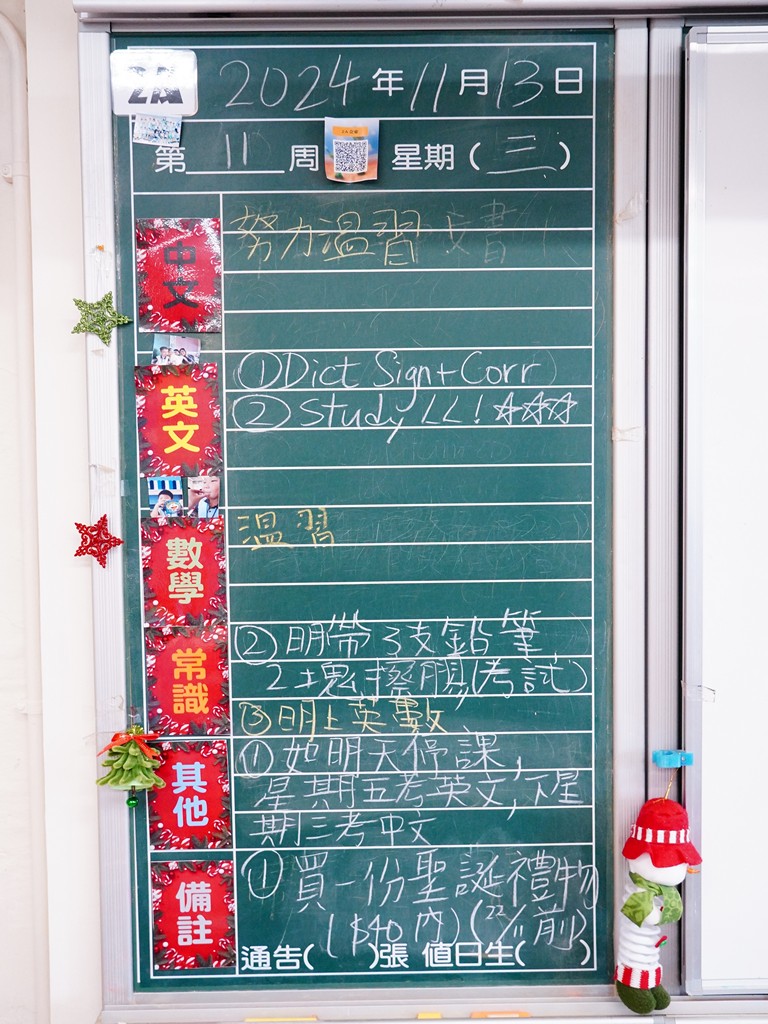 2A
2024年11月13日
第11周 星期(三)
中文
努力溫習
英文
①Dict Sign+Corr
②Study LL!☆☆☆
數學
溫習
常識
②明帶3支鉛筆
2塊擦膠(考試)
③明上英數
其他
明天停課,
星期五考英文,下星
期三考中文
備註
①買一份聖誕禮物
($40內)(22/11前)
通告( )張 值日生( )